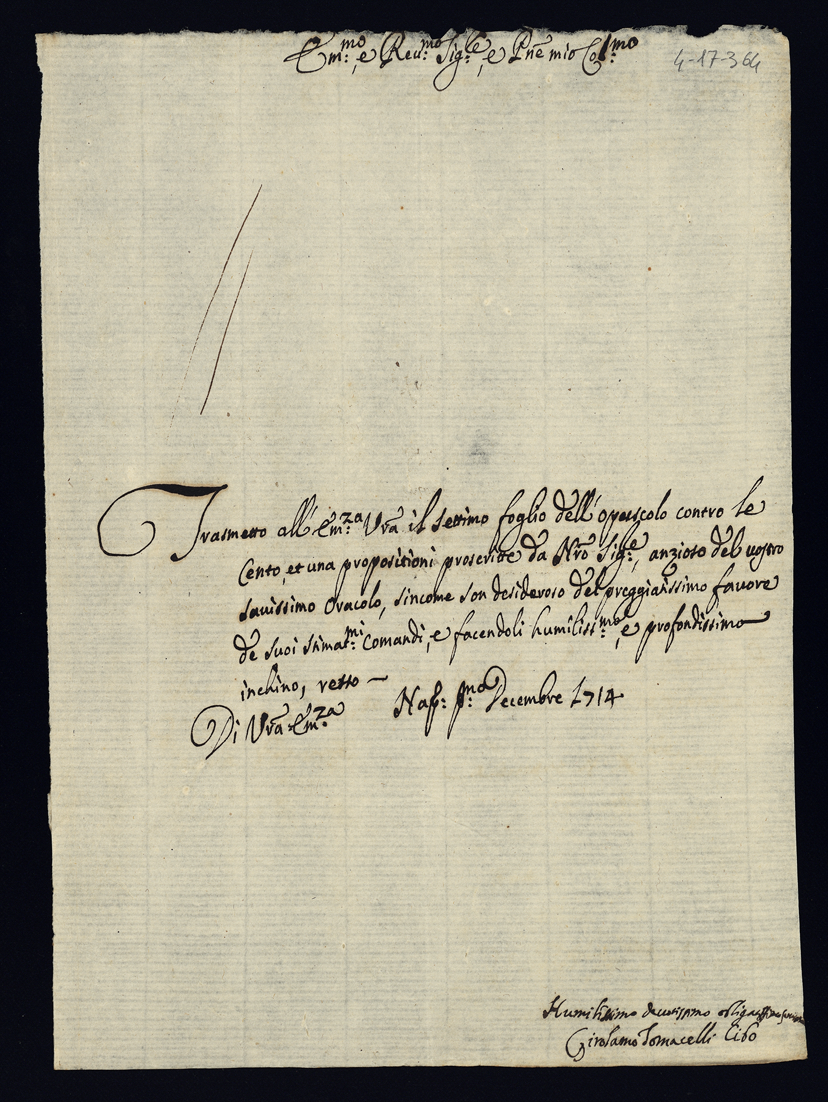 Em:mo, e Reu:mo Sig:re, e Pñe mio Co:lmo
4-17-364
Trasmetto all'Em:za Vrã il settimo foglio dell'opuscolo contro le
Cento, et una propositioni proscritte da Nrõ Sig:re, anzioso del vostro
sauissimo Oracolo, sincome son desideroso del preggiatissimo fauore
de suoi stimat:mi Comandi, e facendoli humiliss:mo, e profondissimo
inchino, resto
Di Vrã Em:za Nap: p:mo Decembre 1714
Humilissimo deuotissimo
Girolamo Tomacelli Cibo